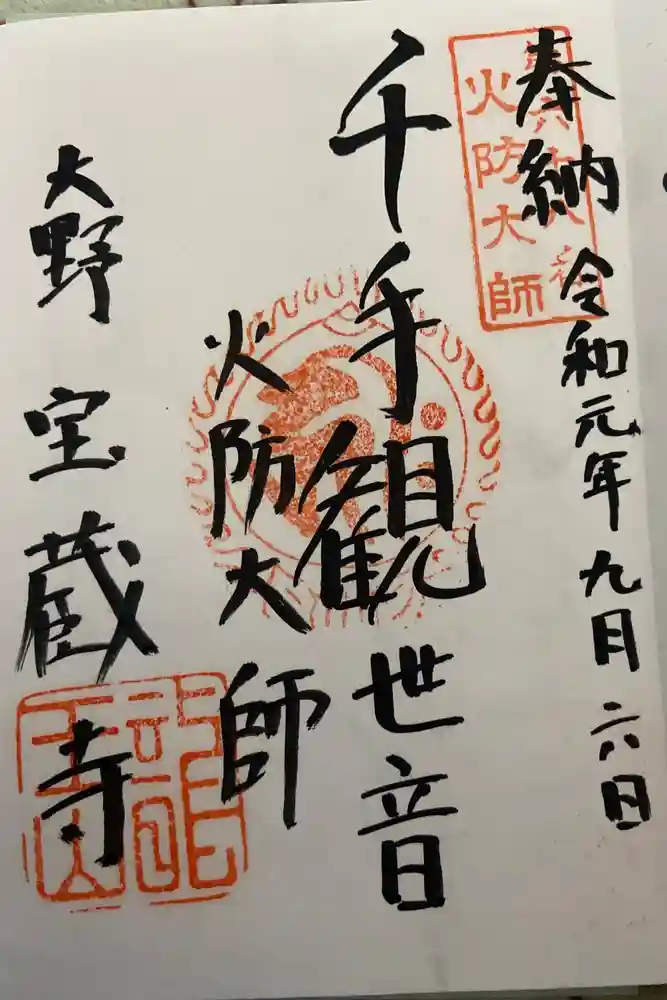 奉納 令和元年九月六日
火防大師
千手観世音
火防大師
大野 宝蔵寺